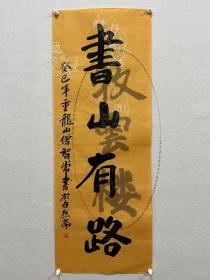 書山有路
癸巳年重龍山僧智常書於自在齋
攬雲樓